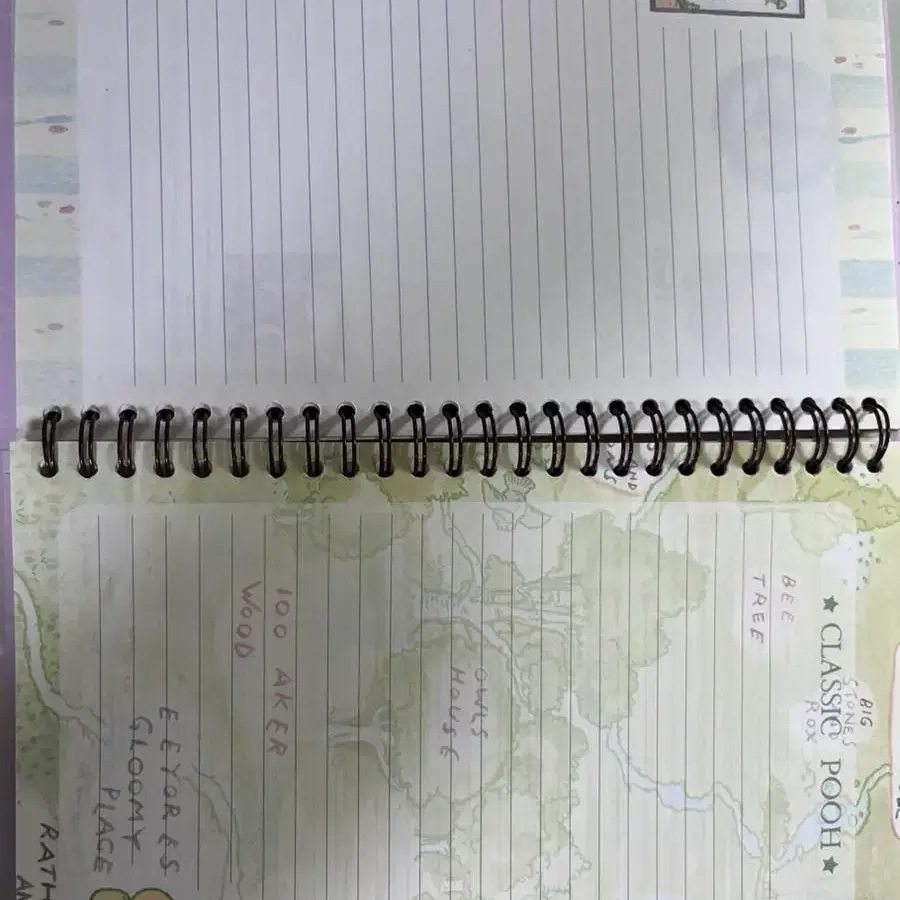 ★ CLASSIC POOH ★
BIG
STONES
ROX
BEE
TREE
AND
OWLS
HOUSE
100 AKER
WOOD
EEYORES
GLOOMY
PLACE
RATH
AN